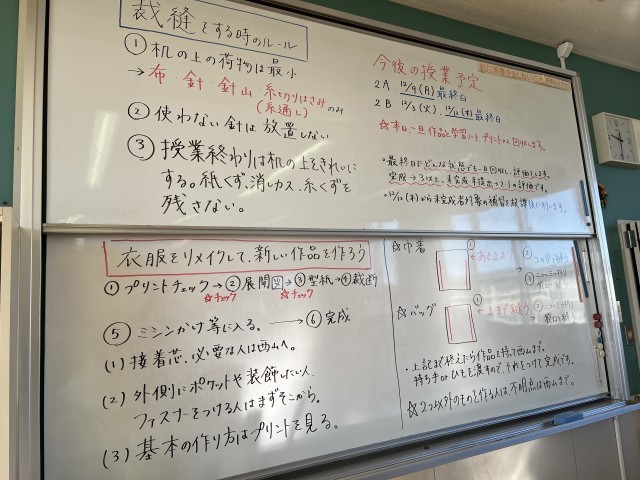 裁縫をする時のルール
① 机の上の荷物は最小
→ 布・針・針山・糸切りはさみのみ
(糸通し)
② 使わない針は放置しない
③ 授業終わりは机の上をきれいに
する。紙くず、消しカス、糸くずを
残さない。
今後の授業予定
2A 12/9(月)最終日
2B 12/3(火)、12/12(木)最終日
☆本日、一旦作品と学習ノート、プリント2つ回収します。
・最終日にどんな状態でも一旦回収し、評価をします。
完成→3以上、未完成・未提出→2・1の評価です。
・12/12(木)から未完成者対象の補習を放課後に行います。
衣服をリメイクして、新しい作品を作ろう
①プリントチェック→②展開図→③型紙→④裁断
☆チェック ☆チェック
⑤ ミシンがけ等に入る。→⑥完成
(1) 接着芯、必要な人は西山へ。
(2) 外側にポケットや装飾したい人、
ファスナーをつける人はまずそこから。
(3) 基本の作り方はプリントを見る。
☆巾着
①
←あき止まり
②
③
☆バッグ
①
←上まで縫う
②
・上記まで終えたら作品を持って西山まで。
持ち手orひもを渡すので、それをつけて完成です。
☆2つ以外のものを作る人は、不明点は西山まで。